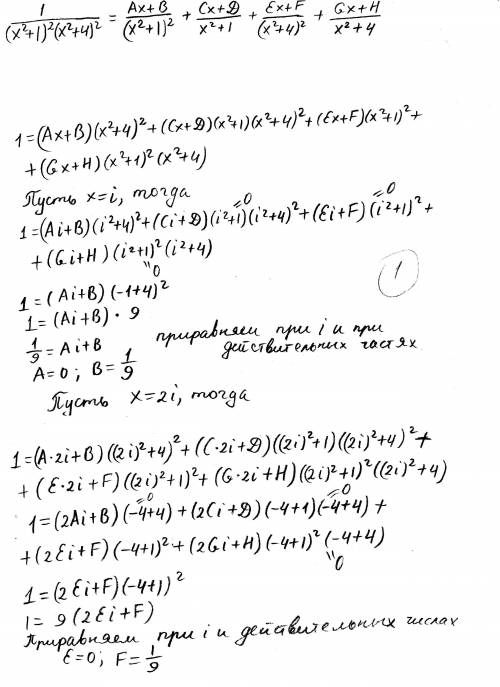 1/((x²+1)²(x²+4)²) = (Ax+B)/(x²+1)² + (Cx+D)/(x²+1) + (Ex+F)/(x²+4)² + (Gx+H)/(x²+4)
1=(Ax+B)(x²+4)²+(Cx+D)(x²+1)(x²+4)²+(Ex+F)(x²+1)²+
+(Gx+H)(x²+1)²(x²+4)
Пусть x=i, тогда
=0 =0
1=(Ai+B)(i²+4)²+(Ci+D)(i²+1)(i²+4)²+(Ei+F)(i²+1)²+
+(Gi+H)(i²+1)²(i²+4)
"0
1
1=(Ai+B)(-1+4)²
1=(Ai+B)·9
1/9=Ai+B
приравняем при i и при
действительных частях
A=0; B=1/9
Пусть x=2i, тогда
1=(A·2i+B)((2i)²+4)²+(C·2i+D)((2i)²+1)((2i)²+4)²+
+(E·2i+F)((2i)²+1)²+(G·2i+H)((2i)²+1)²((2i)²+4)
=0 =0
1=(2Ai+B)(-4+4)+(2Ci+D)(-4+1)(-4+4)+
+(2Ei+F)(-4+1)²+(2Gi+H)(-4+1)²(-4+4)
"0
1=(2Ei+F)(-4+1)²
1=9(2Ei+F)
Приравняем при i и действительных числах
E=0; F=1/9